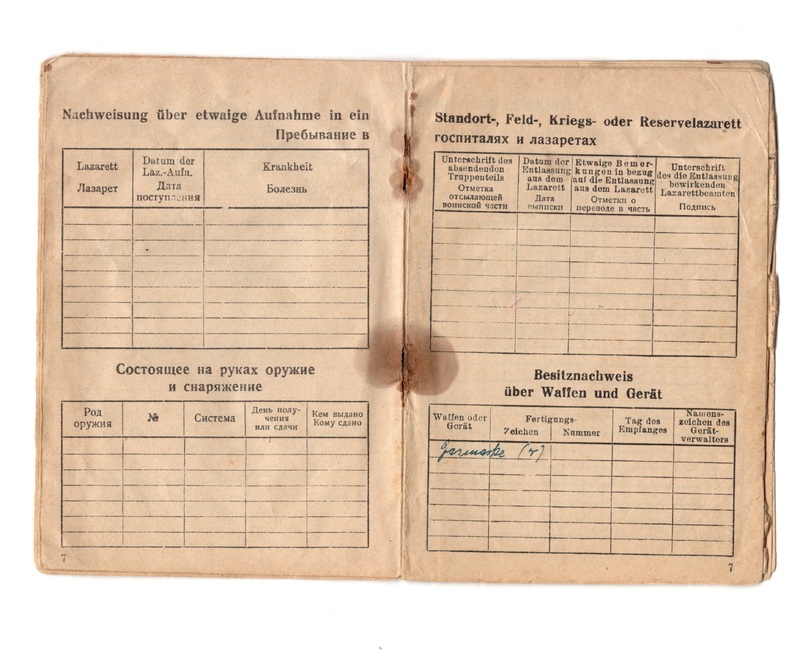 Nachweisung über etwaige Aufnahme in ein
Пребывание в
Lazarett
Лазарет
Datum der
Laz.-Aufn.
Дата
поступления
Krankheit
Болезнь
Состоящее на руках оружие
и снаряжение
Род
оружия
№
Система
День полу-
чения
или сдачи
Кем выдано
Кому сдано
7
Standort-, Feld-, Kriegs- oder Reservelazarett
госпиталях и лазаретах
Unterschrift des
absendenden
Truppenteils
Отметка
отсылающей
воинской части
Datum der
Entlassung
aus dem
Lazarett
Дата
выписки
Etwaige Bemer-
kungen in bezug
auf die Entlassung
aus dem Lazarett
Отметки о
переводе в часть
Unterschrift
des die Entlassung
bewirkenden
Lazarettbeamten
Подпись
Besitznachweis
über Waffen und Gerät
Waffen oder
Gerät
Fertigungs-
Zeichen
Nummer
Tag des
Empfanges
Namens-
zeichen des
Gerät-
verwalters
Gasmaske (r)
7